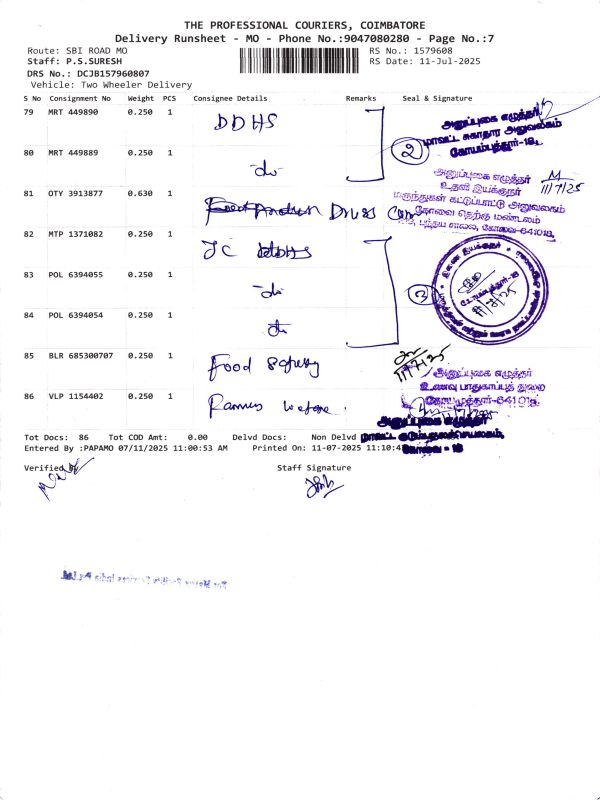 THE PROFESSIONAL COURIERS, COIMBATORE
Delivery Runsheet - MO - Phone No.:9047080280 - Page No.:7
Route: SBI ROAD MO
RS No.: 1579608
Staff: P.S.SURESH
RS Date: 11-Jul-2025
DRS No.: DCJB157960807
Vehicle: Two Wheeler Delivery
S No Consignment No Weight PCS Consignee Details Remarks Seal & Signature
79 MRT 449890 0.250 1 DDHS
அனுப்புகை எழுத்தர்
மாவட்ட சுகாதார அலுவலகம்
கோயம்புத்தூர்-18.
80 MRT 449889 0.250 1 -do- 2
அனுப்புகை எழுத்தர்
உதவி இயக்குநர்
11/7/25
81 OTY 3913877 0.630 1 Drugs
மருந்துகள் கட்டுப்பாட்டு அலுவலகம்
கோவை தெற்கு மண்டலம்
பந்தய சாலை, கோவை-641018.
82 MTP 1371082 0.250 1 JC
83 POL 6394055 0.250 1 -do-
84 POL 6394054 0.250 1 -do-
85 BLR 685300707 0.250 1 Food Safety
11/7/25
அனுப்புகை எழுத்தர்
உணவு பாதுகாப்புத் துறை
கோயமுத்தூர்-641018.
86 VLP 1154402 0.250 1
அனுப்புகை எழுத்தர்
Tot Docs: 86 Tot COD Amt: 0.00 Delvd Docs: Non Delvd
மாவட்ட
கோவை - 18
Entered By :PAPAMO 07/11/2025 11:00:53 AM Printed On: 11-07-2025 11:10:4
Verified By
Staff Signature